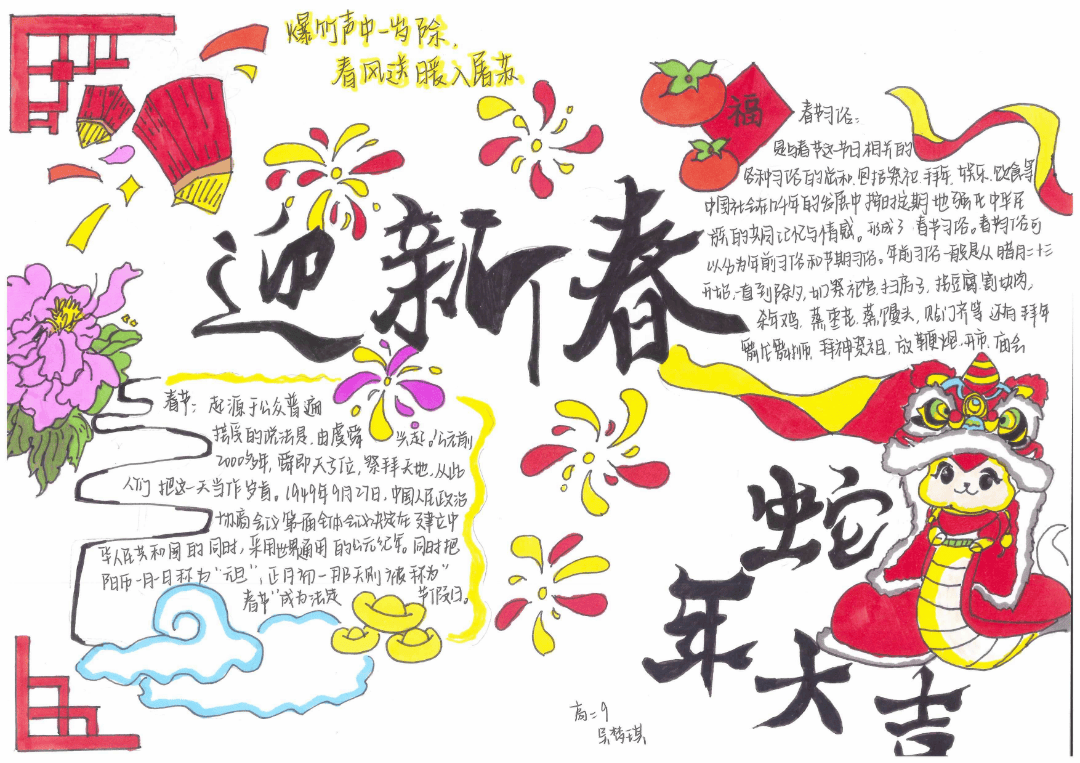 爆竹声中一岁除,
春风送暖入屠苏.
迎新春
福
春节习俗:
是与春节这一节日相关的
各种习俗的总和,包括祭祀,拜年,娱乐,饮食等
中国社会在几千年的发展中按时定期地强化中华民
族的共同记忆与情感。形成了春节习俗。春节习俗可
以分为年前习俗和节期习俗。年前习俗一般是从腊月二十三
开始,一直到除夕,如祭祀官,扫房子,接豆腐,割肉,
杀年鸡,蒸枣花,蒸馒头,贴门齐等 还有拜年
舞龙舞狮,拜神祭祖,放鞭炮,开市,庙会
春节:起源于公众普遍
接受的说法是,由虞舜 兴起。公元前
2000多年,舜即天子位,祭拜天地,从此
人们把这一天当作岁首。1949年9月27日,中国人民政治
协商会议第一届全体会议决定在建立中
华人民共和国的同时,采用世界通用的公元纪年。同时把
阳历一月一日称为“元旦”,正月初一那天则被称为“
春节”成为法定 节假日。
蛇
年
大
吉
高二9
吴梦琪